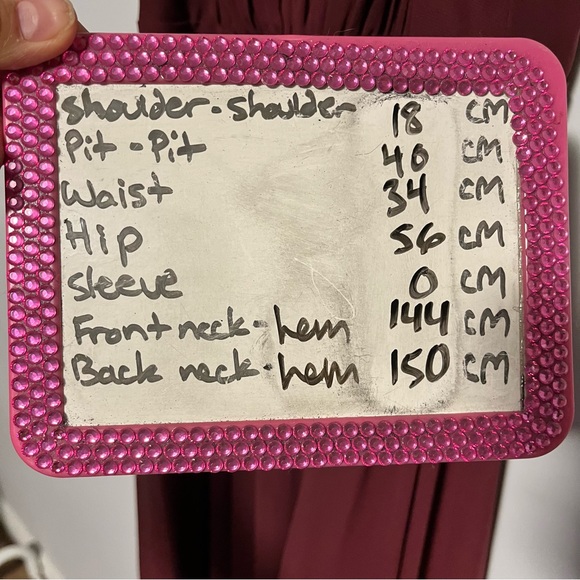 shoulder-shoulder 18 CM
Pit-Pit 40 CM
Waist 34 CM
Hip 56 CM
sleeve 0 CM
Front neck-hem 144 CM
Back neck-hem 150 CM